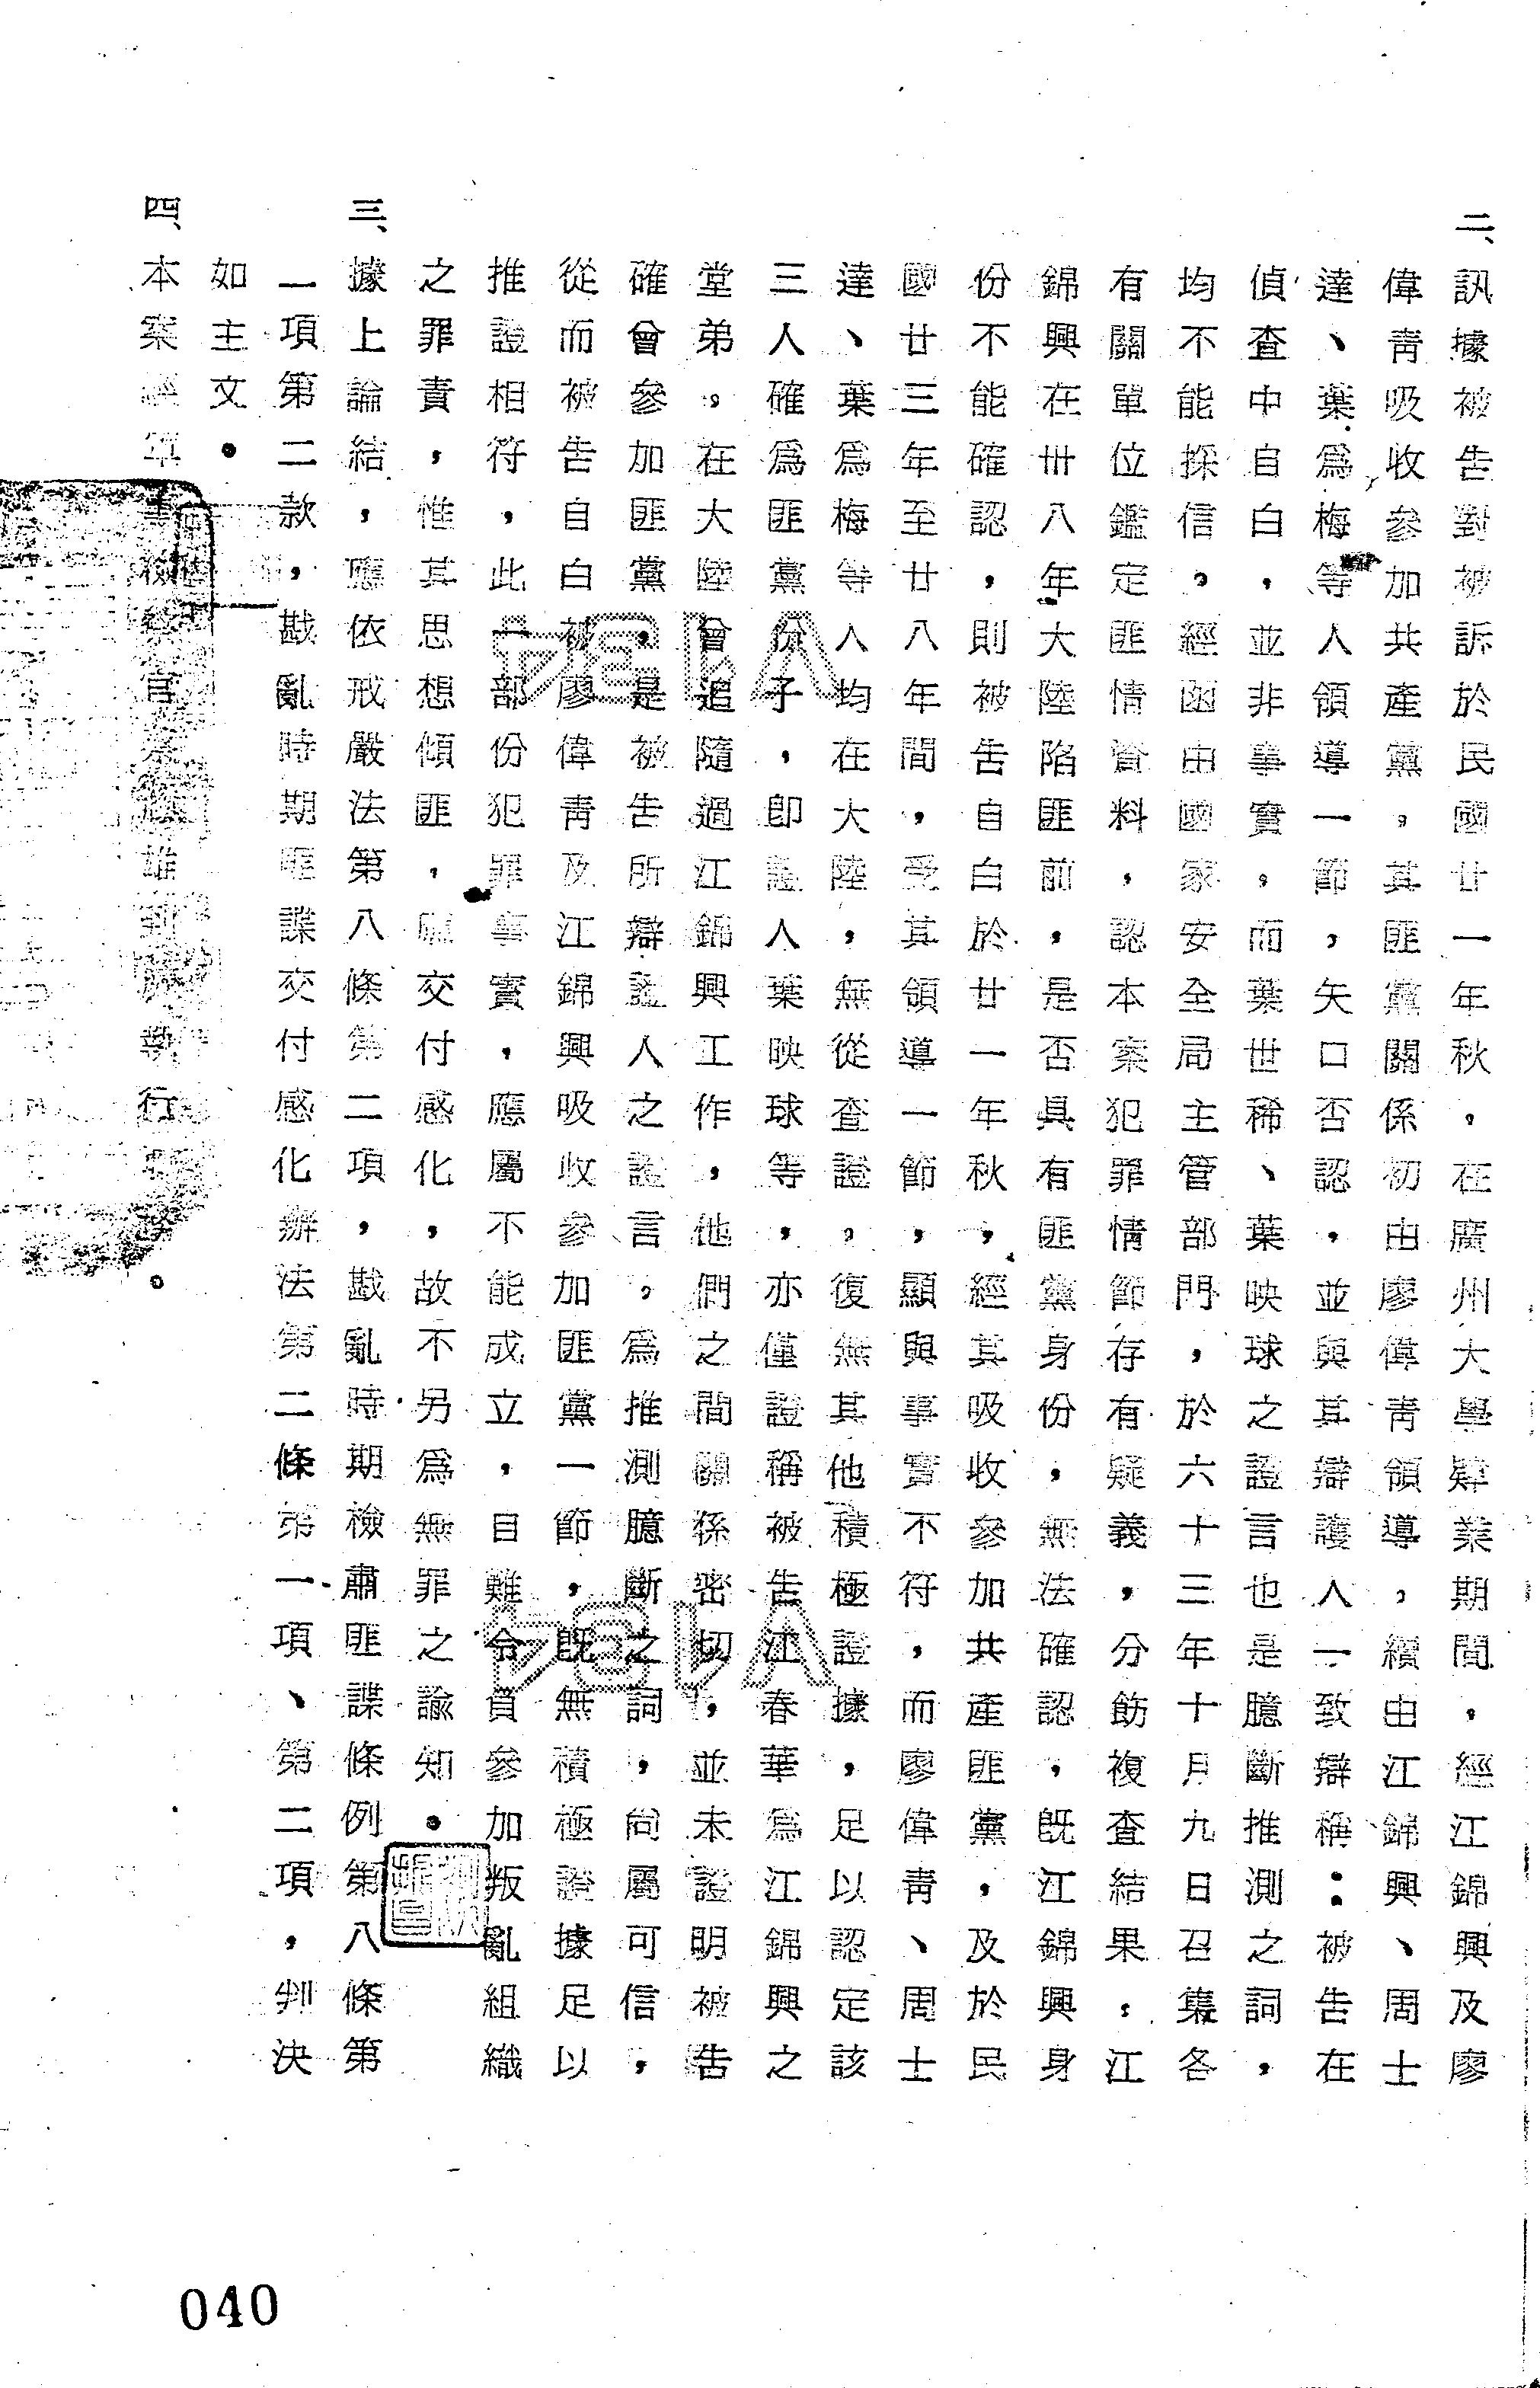 二、訊據被告對被訴於民國廿一年秋，在廣州大學肄業期間，經江錦興及廖
偉青吸收參加共產黨，其匪黨關係初由廖偉青領導，續由江錦興、周士
達、葉為梅等人領導一節，矢口否認，並與其辯護人一致辯稱：被告在
偵查中自白，並非事實，而葉世稀、葉映球之證言也是臆斷推測之詞，
均不能採信。經函由國家安全局主管部門，於六十三年十月九日召集各
有關單位鑑定匪情資料，認本案犯罪情節存有疑義，分飭複查結果，江
錦興在卅八年大陸陷匪前，是否具有匪黨身份，無法確認，既江錦興身
份不能確認，則被告自白於廿一年秋，經其吸收參加共產匪黨，及於民
國廿三年至廿八年間，受其領導一節，顯與事實不符，而廖偉青、周士
達、葉為梅等人均在大陸，無從查證。復無其他積極證據，足以認定該
三人確為匪黨份子，即證人葉映球等，亦僅證稱被告江春華為江錦興之
堂弟。在大陸曾追隨過江錦興工作，他們之間關係密切，並未證明被告
確曾參加匪黨，是被告所辯證人之證言。為推測臆斷之詞，尚屬可信，
從而被告自白被廖偉青及江錦興吸收參加匪黨一節，既無積極證據足以
推證相符，此一部份犯罪事實，應屬不能成立，自難令負參加叛亂組織
之罪責，惟其思想傾匪，應交付感化，故不另為無罪之諭知。
三、據上論結，應依戒嚴法第八條第二項，戡亂時期檢肅匪諜條例第八條第
一項第二款，戡亂時期匪諜交付感化辦法第二條第一項、第二項，判決
如主文。
四、本案經軍檢察官到庭執行職務。
040